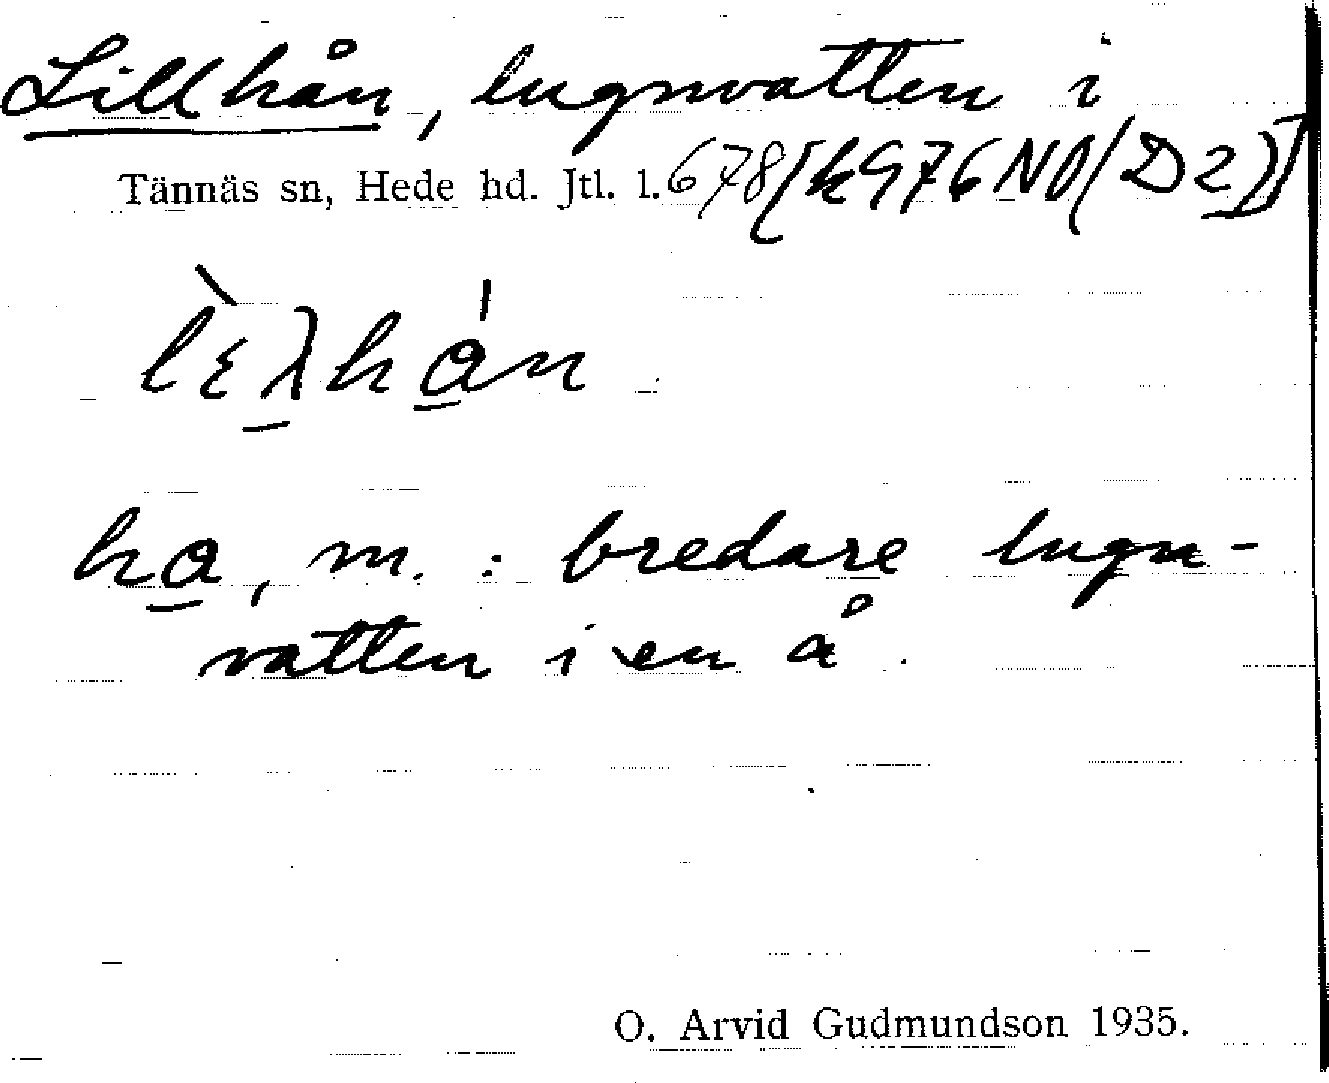 Lillhån, lugnvatten i
Tännäs sn, Hede hd. Jtl. l. 678 [k976NO(D2)]
lὲλhά̲n
hα̲, m. : bredare lugn-
vatten i en å.
O. Arvid Gudmundson 1935.